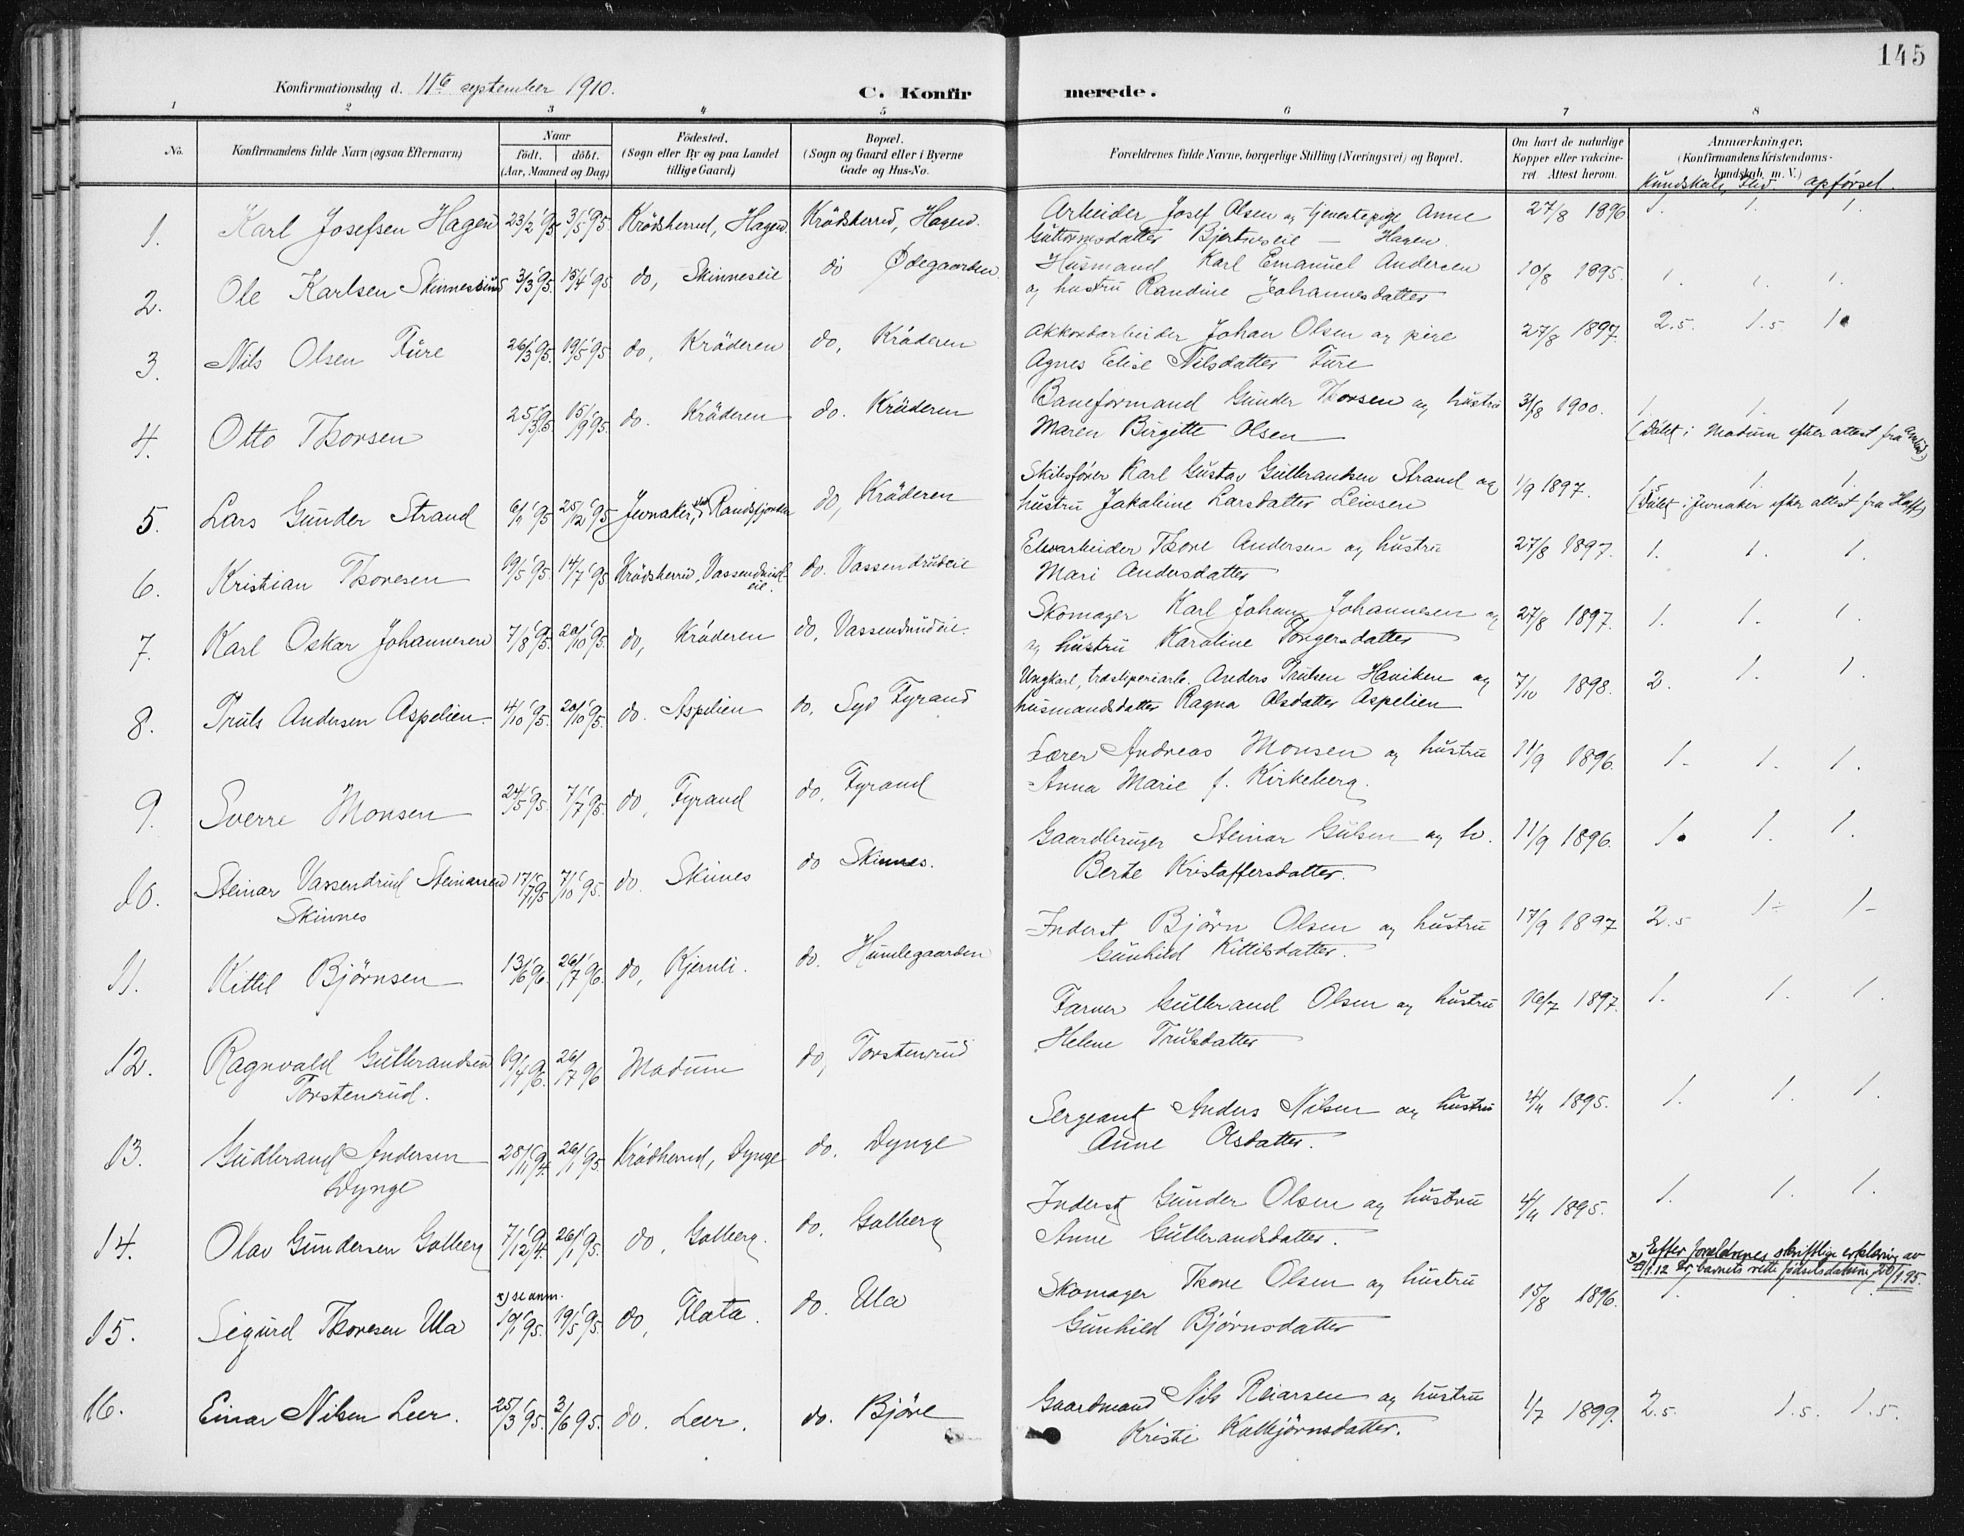 145
Konfirmationsdag d. 11te september 1910.
C. Konfirmerede.
1 2 3 4 5 6 7 8
No. Konfirmandens fulde Navn (ogsaa Efternavn) Naar født. døbt. (Aar, Maaned og Dag) Fødested. (Sogn eller By og paa Landet tillige Gaard) Bopæl. (Sogn og Gaard eller i Byerne Gade og Hus-No. Forældrenes fulde Navne, borgerlige Stilling (Næringsvei) og Bopæl. Om havt de naturlige Kopper eller vakcineret. Attest herom. Anmærkninger. (Konfirmandens Kristendomskundskab, m. V.)
Kundskab, flid. opførsel.
1. Karl Josefsen Hagen 23/2 95 3/5 95 Krødsherred, Hagen. Krødsherred, Hagen. Arbeider Josef Olsen og tjenestepige Anne 27/8 1896. 1. 1. 1.
Guttormsdatter Bjerknæseie — Hagen.
2. Ole Karlsen Skinneseie 3/3 95. 15/4 95 do, Skinneseie do Ødegaarden Husmand Karl Emanuel Andersen 10/8 1895. 1. 1. 1.
og hustru Randine Johannesdatter
3. Nils Olsen Fure 26/3 95. 19/5 95 do, Krøderen do, Krøderen Akkordarbeider Johan Olsen og pike 27/8 1897. 2.5. 1.5. 1.
Agnes Elise Nilsdatter Fure
4. Otto Thorsen 25/3 95. 15/9 95. do. Krøderen do. Krøderen Baneformand Gunder Thorsen og hustru 31/8 1900. 1. 1. 1.
Maren Birgitte Olsen (Døbt i Modum efter attest fra
5. Lars Gunder Strand 95 25/12 95 Jevnaker, Randsfjorden do, Krøderen Skibsfører Karl Gustav Gulbrandsen Strand og 1/9 1897. 1.5 1. 1.
hustru Jakobine Larsdatter (Døbt i Jevnaker efter attest fra
6. Kristian Thoresen 19/5 95. 14/7 95 Krødsherred, Vassendrudeie. do. Vassendrudeie Elvarbeider Thore Andersen og hustru 27/8 1897. 1. 1. 1.
Mari Andersdatter
7. Karl Oskar Johannesen 7/8 95. 20/10 95. do, Krøderen do, Vassendrudeie. Skomager Karl Johan Johannesen og 27/8 1897. 1. 1. 1.
og hustru Karoline Torgersdatter
8. Truls Andersen Aspelien 4/10 95. 20/10 95. do. Aspelien do. Syd Fyrand Ungkarl, træsliperiarb. Anders Trulsen Haviken og 7/10 1898. 2. 1. 1.
husmandsdatter Ragna Olsdatter Aspelien
9. Sverre Monsen 24/5 95. 7/7 95. do, Fyrand do, Fyrand Lærer Andreas Monsen og hustru 11/9 1896. 1. 1. 1.
Anna Marie f. Kirkeberg.
10. Steinar Vassendrud Steinarsen 17/7 95 7/10 95. do. Skinnes do Skinnes. Gaardbruger Steinar Gulsen og h. 11/9 1896. 1. 1. 1.
Skinnes Berte Kristoffersdatter.
11. Kittil Bjørnsen 13/6 96. 26/7 96. do, Kjernli. do. Humlegaarden Inderst Bjørn Olsen og hustru 17/9 1897 2.5 1. 1.
Gunhild Kittilsdatter.
12. Ragnvald Gulbrandsen 19/4 96. 26/7 96 Modum do, Torstenrud Farver Gulbrand Olsen og hustru 16/7 1897. 1. 1. 1.
Torstenrud. Helene Trulsdatter
13. Gudbrand Andersen 28/11 94. 26/1 95 Krødsherred, Dynge do. Dynge Sergeant Anders Nilsen og hustru 1895. 1. 1. 1.
Dynge Anne Olsdatter.
14. Olav Gundersen Golberg 7/12 94. 26/1 95. do, Golberg. do. Golberg Inderst Gunder Olsen og hustru 1895. 1. 1. 1.
Anne Gulbrandsdatter.
x) Efter forældrenes skriftlige erklæring av
2/1.12 er barnets rette fødselsdatum 20/1.95.
15. Sigurd Thoresen Ula x) se anm. 19/1 95. 19/5 95. do, Flata. do. Ula Skomager Thore Olsen og hustru 15/8 1896. 1. . .
Gunhild Bjørnsdatter
16. Einar Nilsen Leer. 25/3 95. 3/6 95. do. Leer. do. Bjøre Gaardmand Nils Reiarsen og hustru 1/7 1899. 2.5. 1.5. 1.5.
Kristi Kolbjørnsdatter.